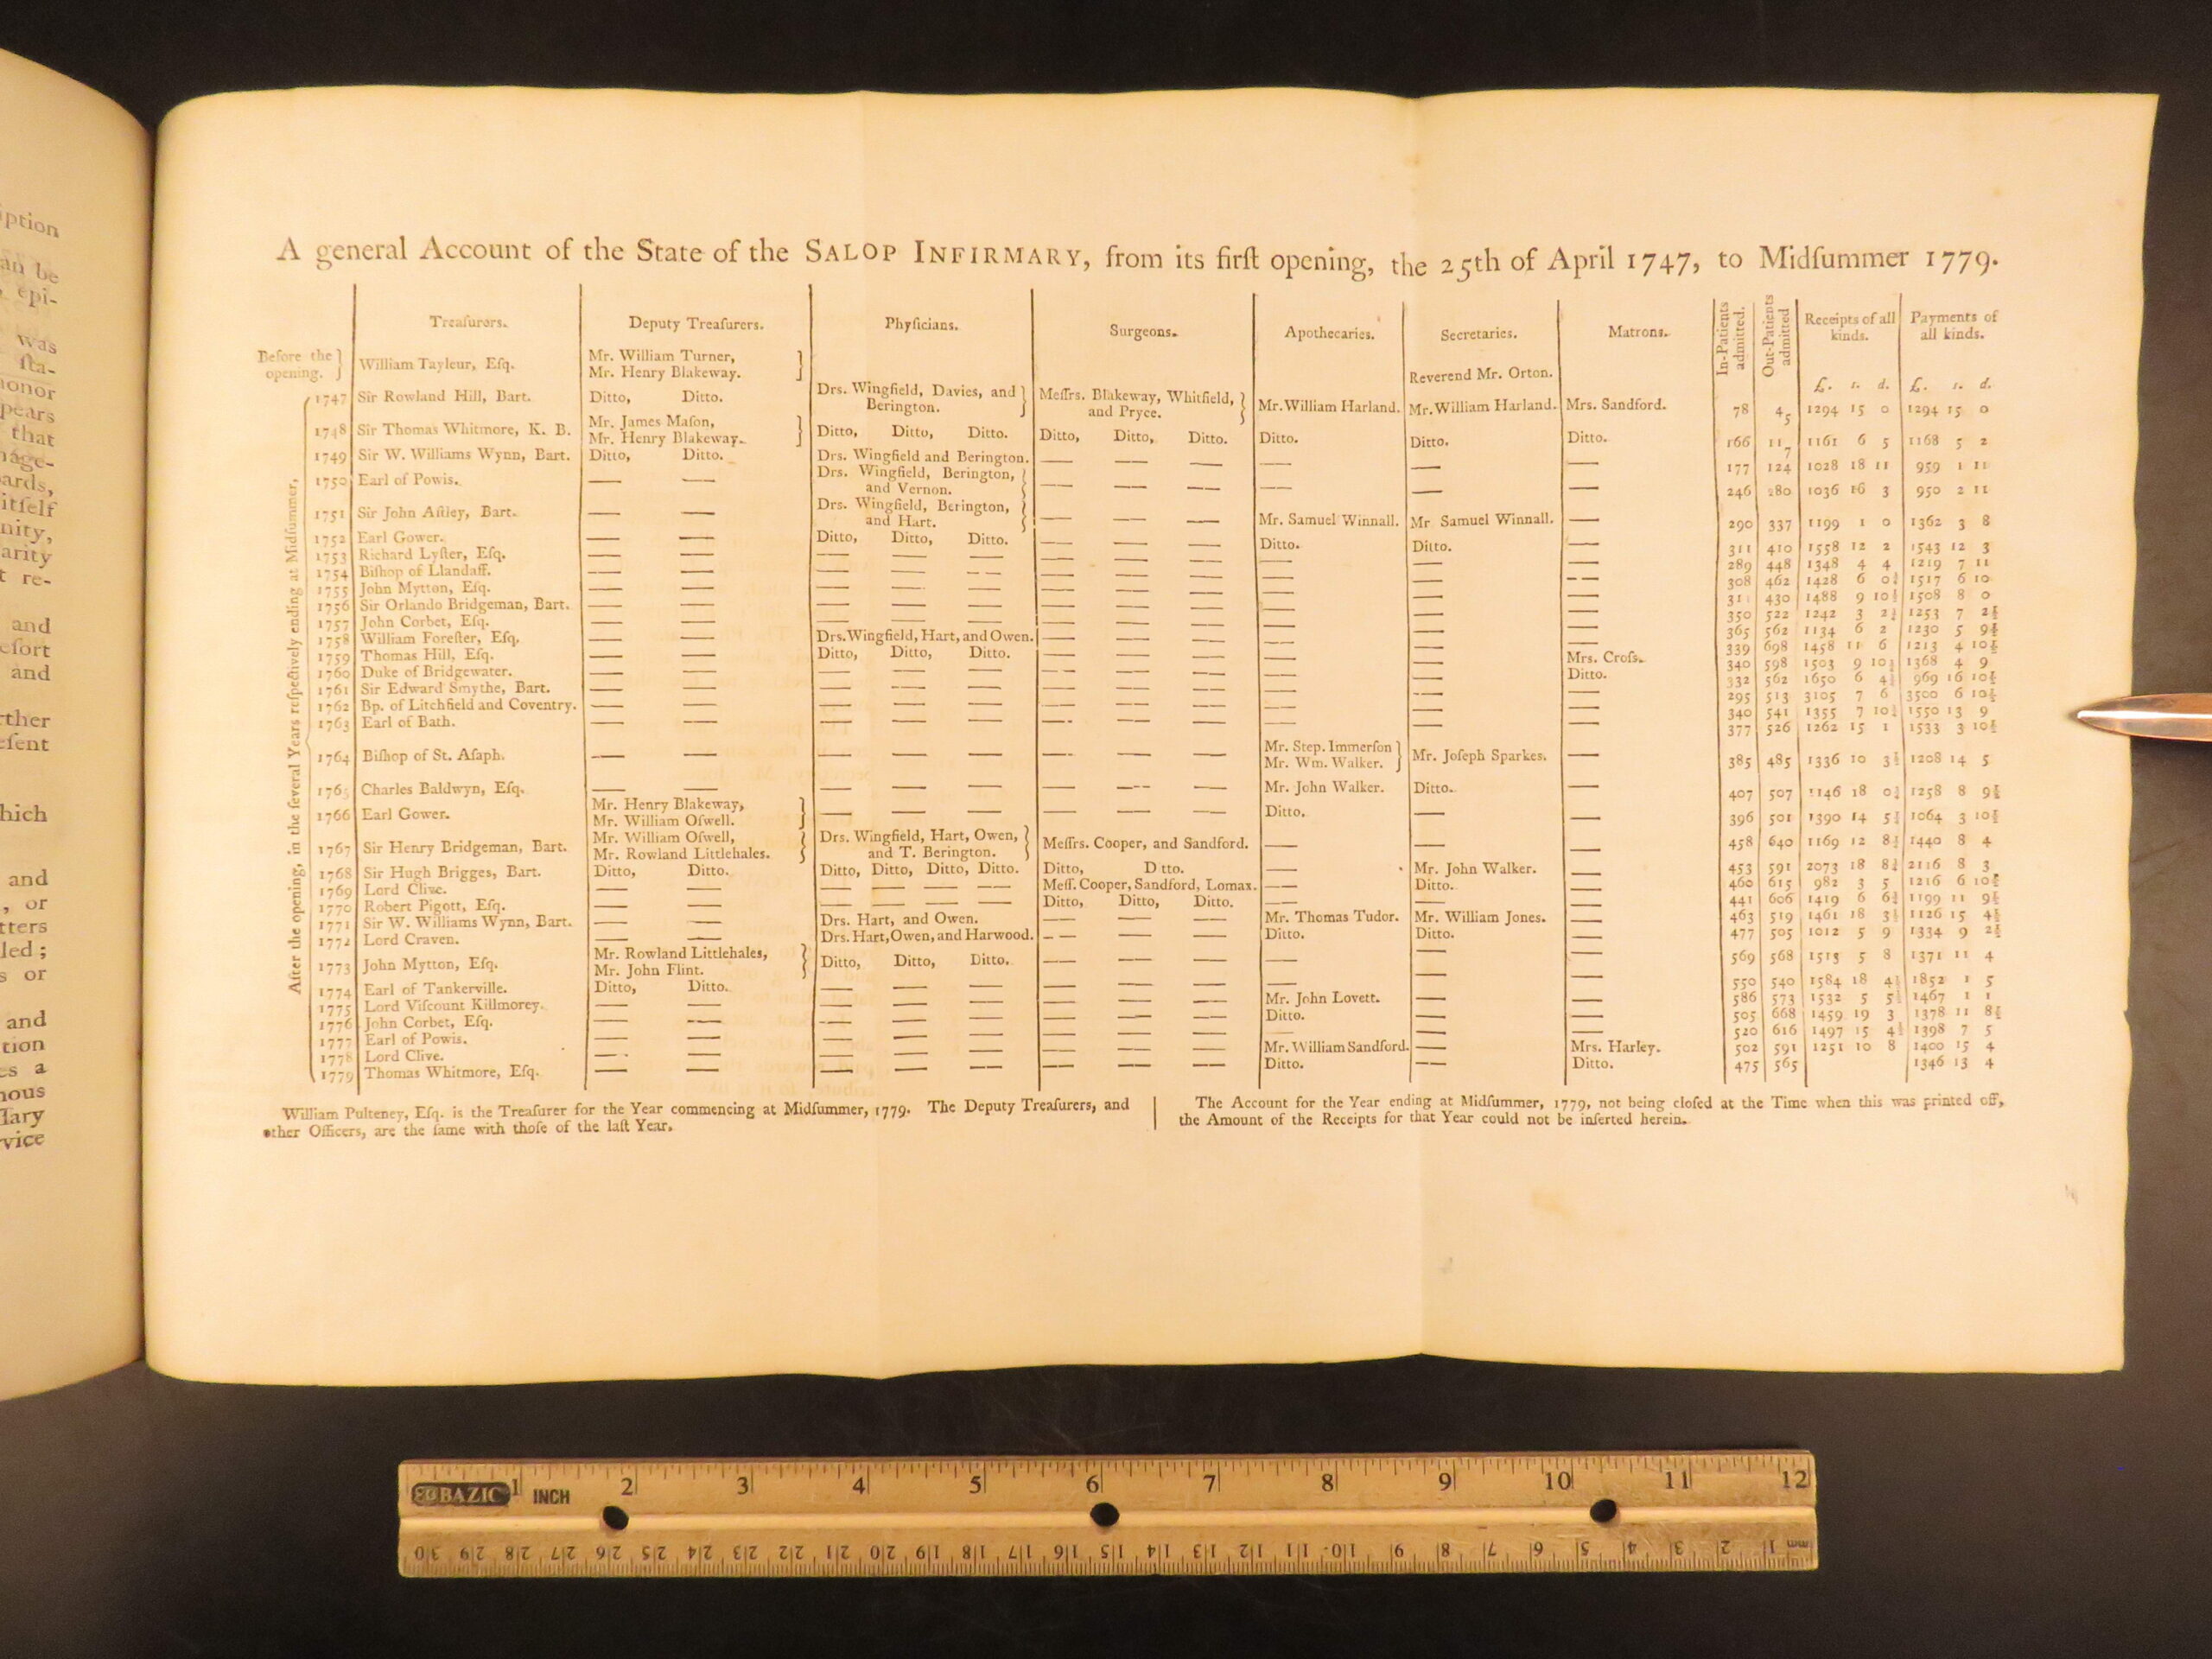 iption
an be
epi-
was
ſta-
honor
pears
that
nage-
ards,
itſelf
nity,
arity
t re-
and
eſort
and
rther
eſent
hich
and
, or
tters
led;
s or
and
tion
es a
nous
ſary
rvice
A general Account of the State of the SALOP INFIRMARY, from its firſt opening, the 25th of April 1747, to Midſummer 1779.
Treaſurers. Deputy Treaſurers. Phyſicians. Surgeons. Apothecaries. Secretaries. Matrons. In-Patients admitted. Out-Patients admitted Receipts of all kinds. Payments of all kinds.
£. s. d. £. s. d.
Before the opening. } William Tayleur, Eſq. Mr. William Turner, Mr. Henry Blakeway. } Reverend Mr. Orton.
After the opening, in the ſeveral Years reſpectively ending at Midſummer,
1747 Sir Rowland Hill, Bart. Ditto, Ditto. Drs. Wingfield, Davies, and Berington. } Meſſrs. Blakeway, Whitfield, and Pryce. } Mr. William Harland. Mr. William Harland. Mrs. Sandford. 78 45 1294 15 0 1294 15 0
1748 Sir Thomas Whitmore, K. B. Mr. James Maſon, Mr. Henry Blakeway. } Ditto, Ditto, Ditto. Ditto, Ditto, Ditto. Ditto. Ditto. Ditto. 166 117 1161 6 5 1168 5 2
1749 Sir W. Williams Wynn, Bart. Ditto, Ditto. Drs. Wingfield and Berington. — — — — — — 177 124 1028 18 11 959 1 11
1750 Earl of Powis. — — Drs. Wingfield, Berington, and Vernon. } — — — — — — 246 280 1036 16 3 950 2 11
1751 Sir John Aſtley, Bart. — — Drs. Wingfield, Berington, and Hart. } — — — Mr. Samuel Winnall. Mr Samuel Winnall. — 290 337 1199 1 0 1362 3 8
1752 Earl Gower. — — Ditto, Ditto, Ditto. — — — Ditto. Ditto. — 311 410 1558 12 2 1543 12 3
1753 Richard Lyſter, Eſq. — — — — — — — — — — — 289 448 1348 4 4 1219 7 11
1754 Biſhop of Llandaff. — — — — — — — — — — — 308 462 1428 6 0 1517 6 10
1755 John Mytton, Eſq. — — — — — — — — — — — 311 430 1488 9 10 1508 8 0
1756 Sir Orlando Bridgeman, Bart. — — — — — — — — — — — 350 522 1242 3 2 1253 7 2
1757 John Corbet, Eſq. — — — — — — — — — — — 365 562 1134 6 2 1230 5 9
1758 William Foreſter, Eſq. — — Drs. Wingfield, Hart, and Owen. — — — — — — 339 698 1458 11 6 1213 4 10
1759 Thomas Hill, Eſq. — — Ditto, Ditto, Ditto. — — — — — Mrs. Croſs. 340 598 1503 9 10 1368 4 9
1760 Duke of Bridgewater. — — — — — — — — — — Ditto. 332 562 1650 6 4 969 16 10
1761 Sir Edward Smythe, Bart. — — — — — — — — — — — 295 513 3105 7 6 3500 6 10
1762 Bp. of Litchfield and Coventry. — — — — — — — — — — — 340 541 1355 7 10 1550 13 9
1763 Earl of Bath. — — — — — — — — — — — 377 526 1262 15 1 1533 3 10
1764 Biſhop of St. Aſaph. — — — — — — — — Mr. Step. Immerſon Mr. Wm. Walker. } Mr. Joſeph Sparkes. — 385 485 1336 10 3 1208 14 5
1765 Charles Baldwyn, Eſq. — — — — — — — — Mr. John Walker. Ditto. — 407 507 1146 18 0 1258 8 9
1766 Earl Gower. Mr. Henry Blakeway, Mr. William Oſwell. } — — — — — — Ditto. — — 396 501 1390 14 5 1064 3 10
1767 Sir Henry Bridgeman, Bart. Mr. William Oſwell, Mr. Rowland Littlehales. } Drs. Wingfield, Hart, Owen, and T. Berington. } Meſſrs. Cooper, and Sandford. — — — 458 640 1169 12 8 1440 8 4
1768 Sir Hugh Brigges, Bart. Ditto, Ditto. Ditto, Ditto, Ditto, Ditto. Ditto, D tto. — Mr. John Walker. — 453 591 2073 18 8 2116 8 3
1769 Lord Clive. — — — — — — Meſſ. Cooper, Sandford, Lomax. — Ditto. — 460 615 982 3 5 1216 6 10
1770 Robert Pigott, Eſq. — — — — — — Ditto, Ditto, Ditto. — — — 441 606 1419 6 6 1199 11 9
1771 Sir W. Williams Wynn, Bart. — — Drs. Hart, and Owen. — — — Mr. Thomas Tudor. Mr. William Jones. — 463 519 1461 18 3 1126 15 4
1772 Lord Craven. — — Drs. Hart, Owen, and Harwood. — — — Ditto. Ditto. — 477 505 1012 5 9 1334 9 2
1773 John Mytton, Eſq. Mr. Rowland Littlehales, Mr. John Flint. } Ditto, Ditto, Ditto. — — — — — — 569 568 1513 5 8 1371 11 4
1774 Earl of Tankerville. Ditto, Ditto. — — — — — — — — — 550 540 1584 18 4 1852 1 5
1775 Lord Viſcount Killmorey. — — — — — — — — Mr. John Lovett. — — 586 573 1532 5 5 1467 1 1
1776 John Corbet, Eſq. — — — — — — — — Ditto. — — 505 668 1459 19 3 1378 11 8
1777 Earl of Powis. — — — — — — — — — — — 520 616 1497 15 4 1398 7 5
1778 Lord Clive. — — — — — — — — Mr. William Sandford. — Mrs. Harley. 502 591 1251 10 8 1400 15 4
1779 Thomas Whitmore, Eſq. — — — — — — — — Ditto. — Ditto. 475 565 1346 13 4
William Pulteney, Eſq. is the Treaſurer for the Year commencing at Midſummer, 1779. The Deputy Treaſurers, and
other Officers, are the ſame with thoſe of the laſt Year.
The Account for the Year ending at Midſummer, 1779, not being cloſed at the Time when this was printed off,
the Amount of the Receipts for that Year could not be inſerted herein.
BAZIC 1 INCH 2 3 4 5 6 7 8 9 10 11 12
30 29 28 27 26 25 24 23 22 21 20 19 18 17 16 15 14 13 12 11 10 9 8 7 6 5 4 3 2 1 mm